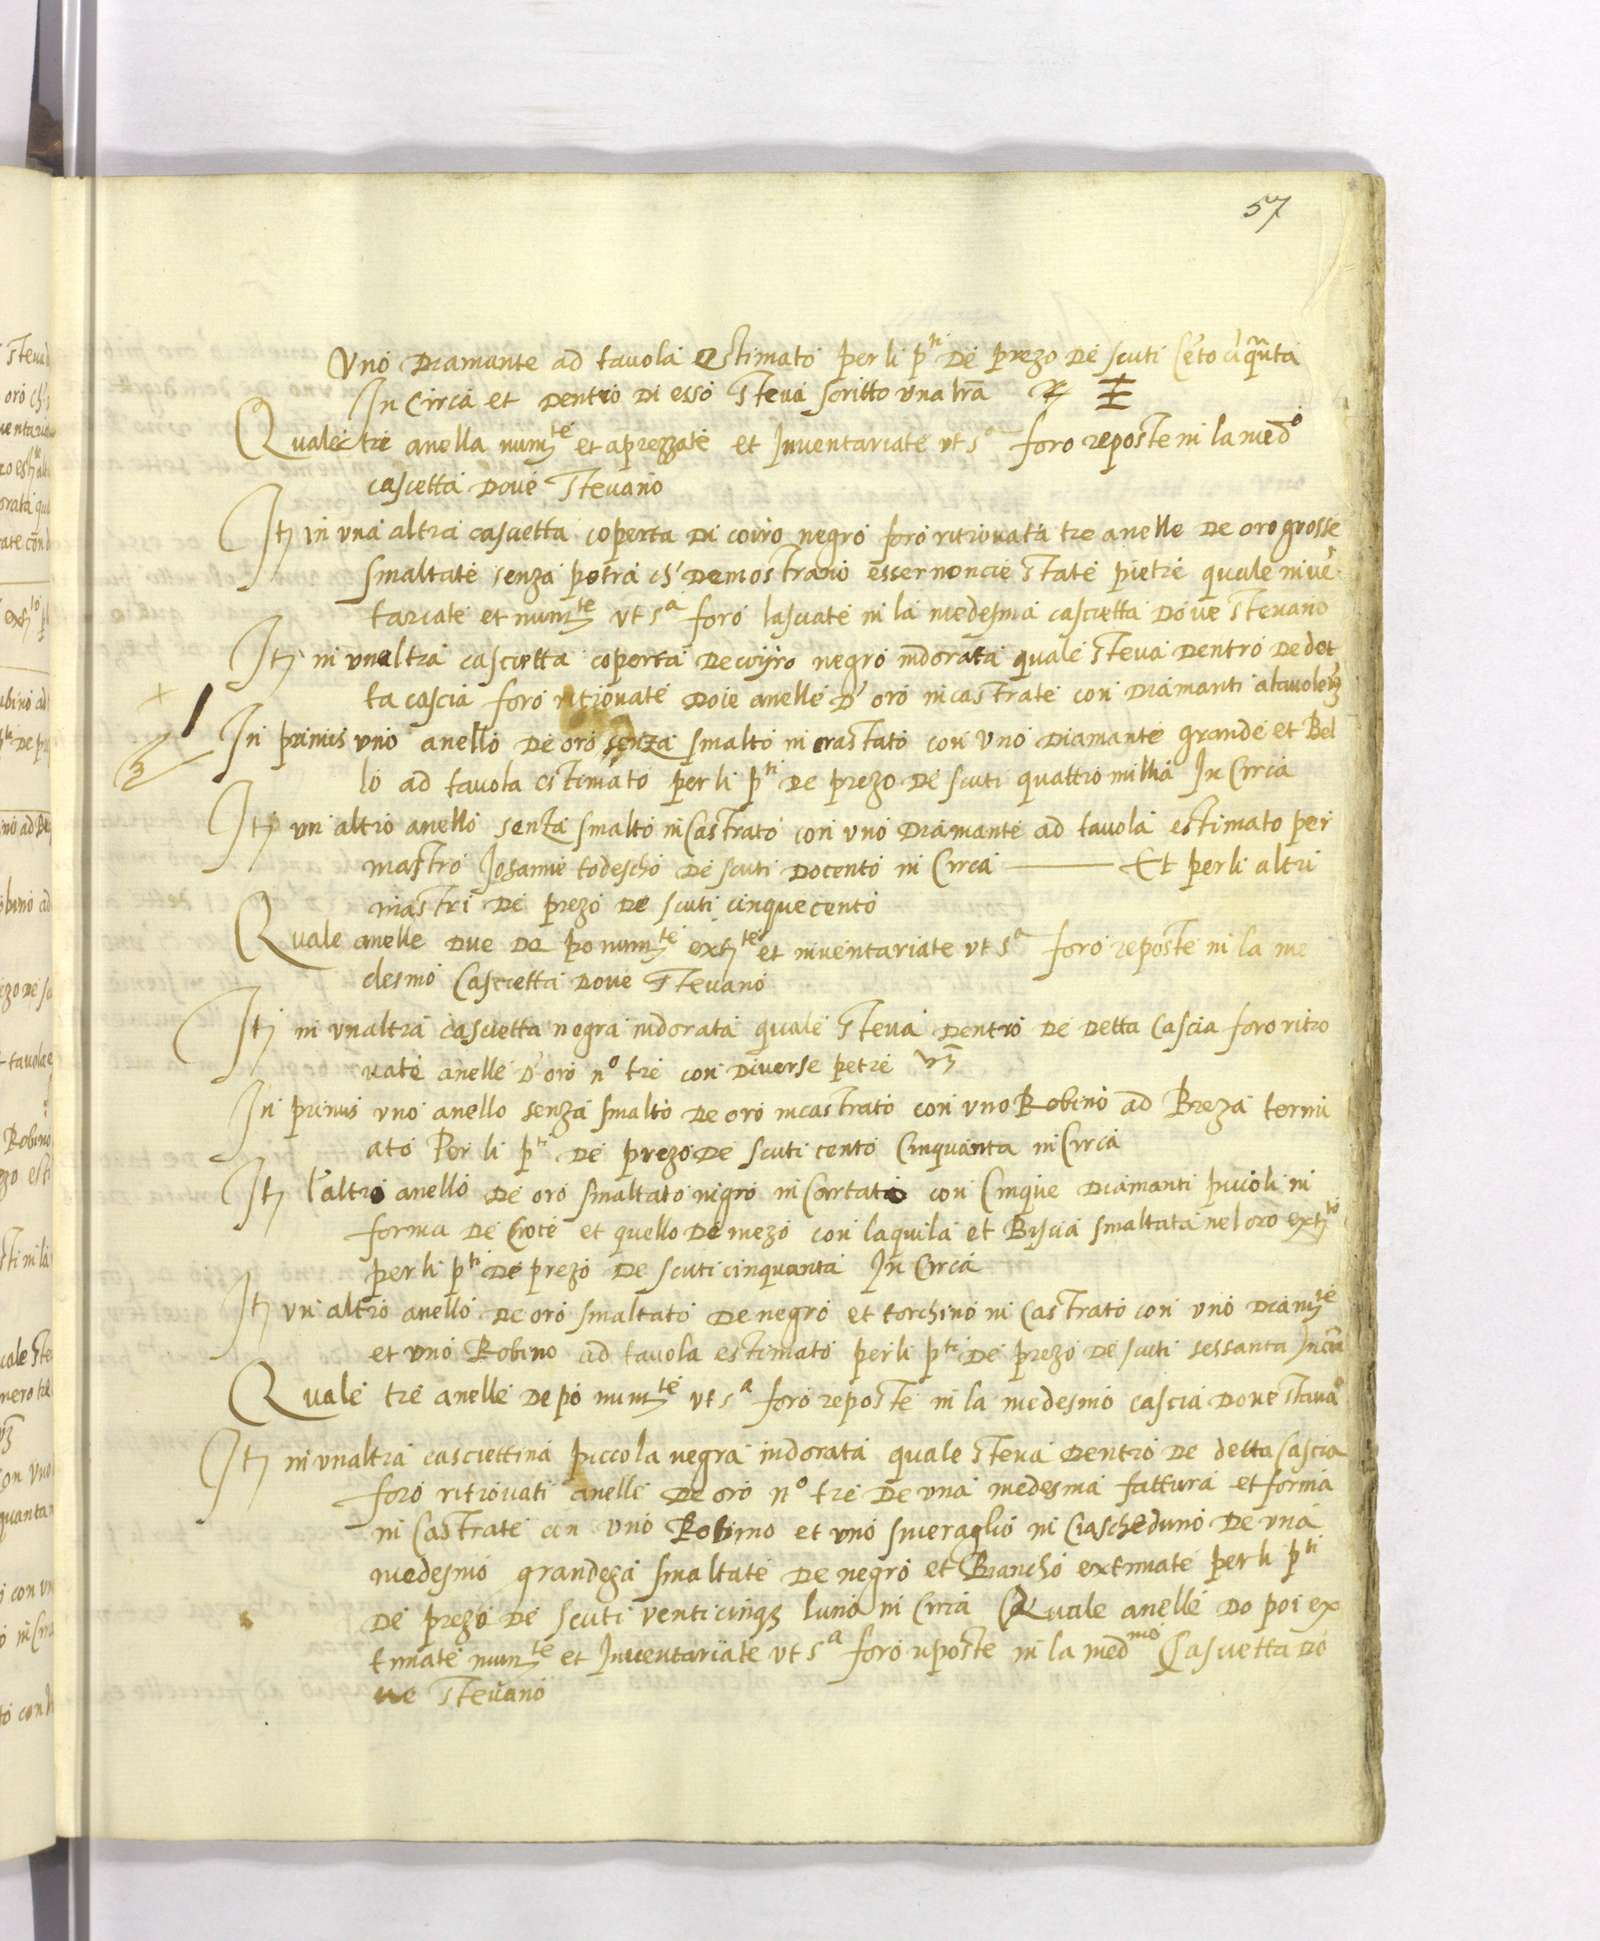 57
Uno Diamante ad tavola Estimato per li p.ti De prezo De scuti Cẽto ciq̃nta
In Circa et Dentro Di esso Steva scritto una lrã
Quale tre anella num.te et aprezzate et Inventariate ut s.a foro reposte ni la med.o
cascetta Dove Stevano
It in una altra casciettà coperta Di coiro negro foro ritrovata tre anelle De oro grosse
smaltate senza petra ch' Demostrano esser non cie state pietre quale inve
tariate et num.te ut s.a foro lasciate ni la medesma cascietta Dove Stevano
It ni unaltra cascietta coperta De coijro negro indorata quale Steva Dentro De det
ta cascia foro ritrovate Doie anelle D' oro nicastrate con Diamanti a tavole
In primis uno anello De oro senza smalto ni crastato con Uno Diamante grande et Bel
lo ad tavola estimato per li p.ti De prezo De scuti quattro milia In Circa
It un altro anello senza smalto ni Castrato con uno Diamante ad tavola estimato per
mastro Joanne todescho De scuti Docento ni Circa ——— Et per li altri
mastri De prezo De scuti cinquecento
Quale anelle Due De po num.te ext.te et inventariate ut s.a foro reposte ni la me
desmo Cascietta Dove Stevano
It ni unaltra cascietta negra indorata quale Steva Dentro De Detta Cascia foro ritro
vate anelle D' oro n.o tre con Diverse petre vz
In primis uno anello senza smalto De oro incastrato con uno Robino ad Breza termi
ato Per li p.ti De prezo De scuti cento Cinquanta ni Circa
It l'altro anello De oro smaltato nigro ni Cartato con Cinque Diamanti piccoli ni
forma De Croce et quello De mezo con laquila et Biscia smaltata nel oro ext.to
per li p.ti De prezo De scuti cinquanta In Circa
It un altro anello De oro smaltato De negro et torchino ni Castrato con uno Diam.te
et uno Robino ad tavola estimato per li p.ti De prezo De scuti sessanta In cira
Quale tre anelle De po num.te ut s.a foro reposte ni la medesmo cascia Dove stava.o
It ni unaltra casciettina piccola negra indorata quale Steva Dentro De detta Cascia
foro ritrovati anelli De oro n.o tre De una medesma fattura et forma
ni Castrate con Uno Robino et uno smeraglio ni Ciascheduno De una
medesmo grandeza smaltate De negro et Biancho extimate per li p.ti
De prezo De scuti venticinq luno ni Circa Quale anelle Do poi ex
timate num.te et Inventariate ut s.a foro riposte ni la med.mo Cascietta Do
ve Stevano